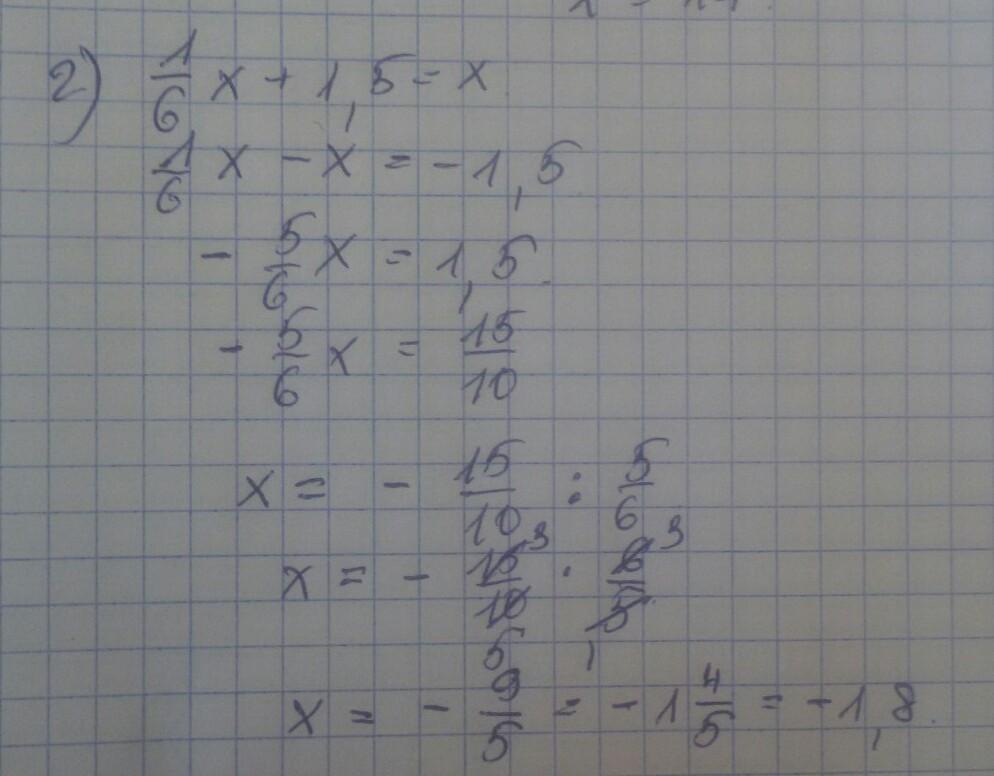 2) 1/6 x + 1,5 = x
1/6 x - x = -1,5
- 5/6 x = 1,5
- 5/6 x = 15/10
x = - 15/10 : 5/6
x = - 15/10 · 6/5
x = - 9/5 = -1 4/5 = -1,8.